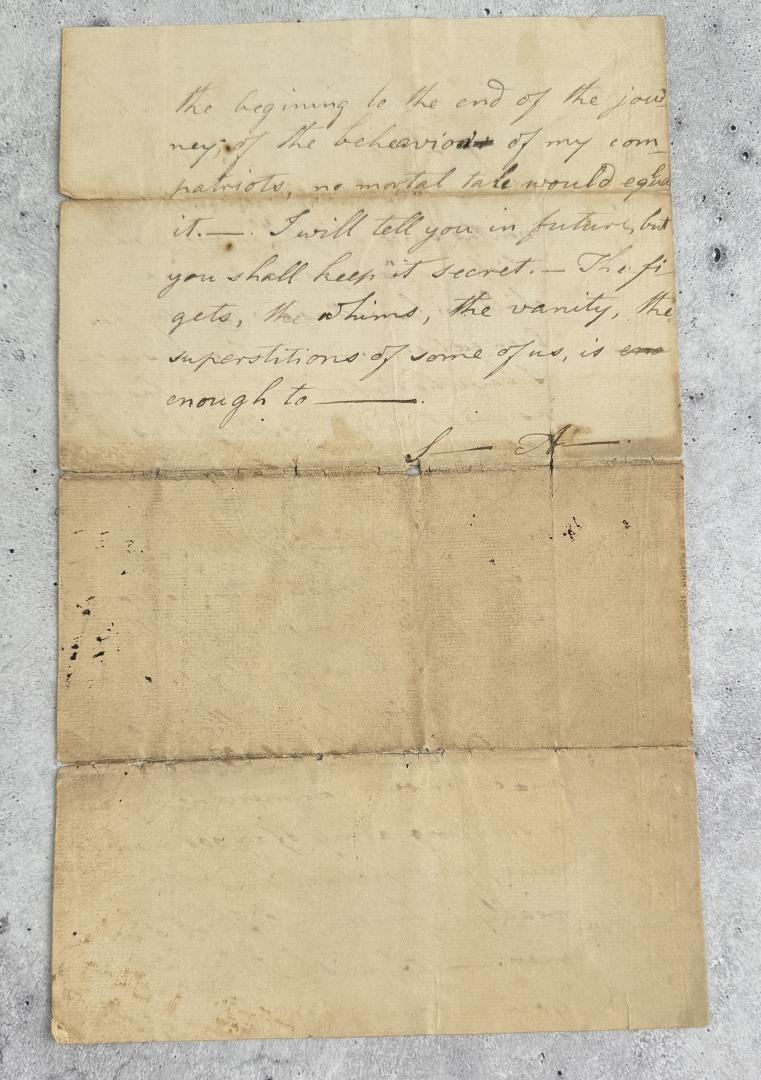 the begining to the end of the jour
ney, of the behavior of my com-
patriots, no mortal tale would equal
it. —. I will tell you in future, but
you shall keep it secret. — The fi
gets, the whims, the vanity, the
superstitions of some of us, is eno
enough to ———.
S— A—.